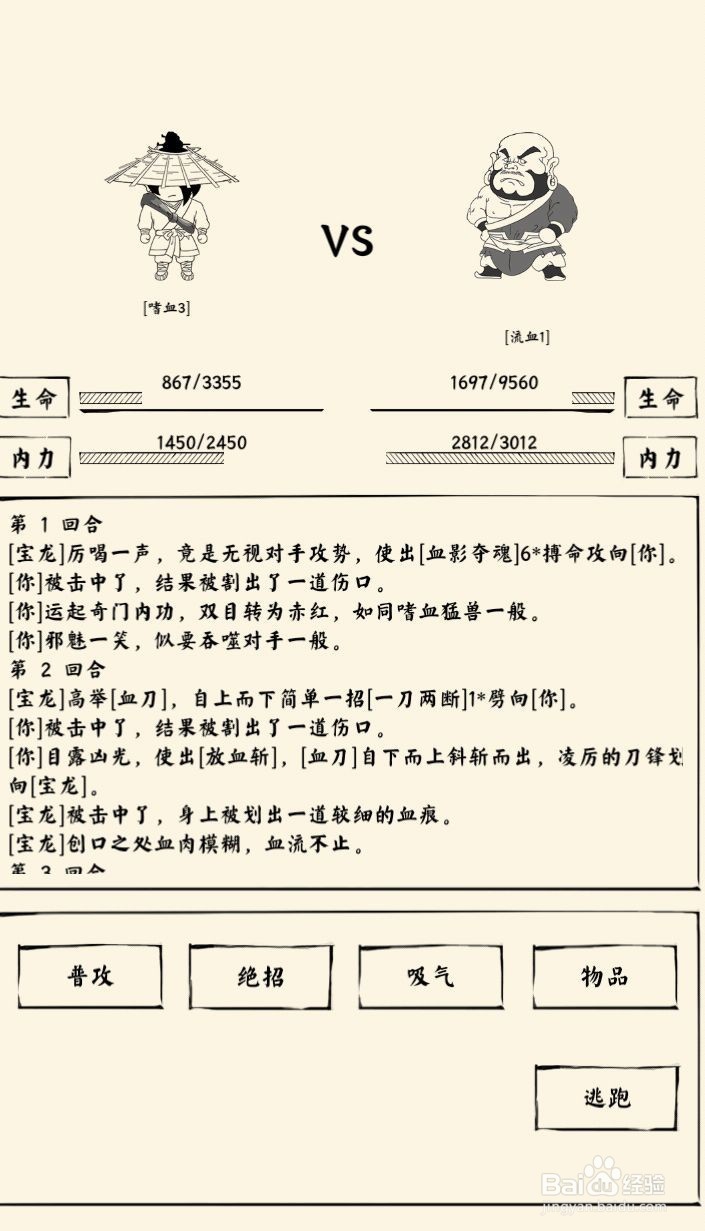 VS
[嗜血3]
[流血1]
生命
867/3355
1697/9560
生命
内力
1450/2450
2812/3012
内力
第 1 回合
[宝龙]厉喝一声，竟是无视对手攻势，使出[血影夺魂]6*搏命攻向[你]。
[你]被击中了，结果被割出了一道伤口。
[你]运起奇门内功，双目转为赤红，如同嗜血猛兽一般。
[你]邪魅一笑，似要吞噬对手一般。
第 2 回合
[宝龙]高举[血刀]，自上而下简单一招[一刀两断]1*劈向[你]。
[你]被击中了，结果被割出了一道伤口。
[你]目露凶光，使出[放血斩]，[血刀]自下而上斜斩而出，凌厉的刀锋划
向[宝龙]。
[宝龙]被击中了，身上被划出一道较细的血痕。
[宝龙]创口之处血肉模糊，血流不止。
第 3 回合
普攻
绝招
吸气
物品
逃跑
Baidu经验
jingyan.baidu.com